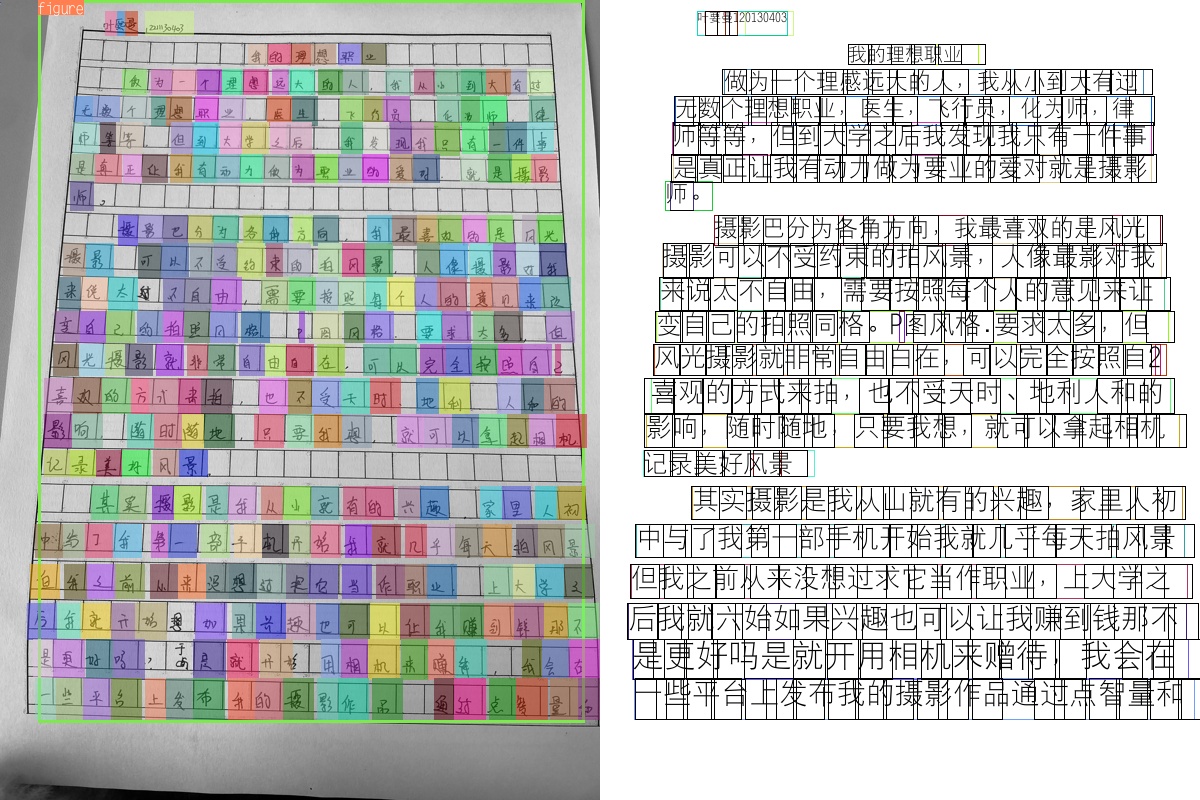 figure
我的理想职业
做为一个理想远大的人,我从小到大有过
无数个理想职业,医生,飞行员,化为师,律
师等等,但到大学之后,我发现我只有一件事
是真正让我有动力做为职业的爱对,就是摄影
师。
摄影巴分为各角方向,我最喜欢的是风光
摄影,可以不受约束的拍风景,人像摄影对我
来说太不自由,需要按照每个人的意见来
变自己的拍照风格,P图风格,要求太多,但
风光摄影就非常自由自在,可以完全按照自己
喜欢的方式来拍,也不受天时、地利、人和的
影响,随时随地,只要我想,就可以拿起相机
记录美好风景。
其实摄影是我从小就有的兴趣,家里人初
中给了我第一部手机开始我就几乎每天拍风景
但我之前从来没想过把它当作职业,上大学之
后我就开始想如果兴趣也可以让我赚到钱那不
是更好吗,于是就开始用相机来赚钱,我会在
一些平台上发布我的摄影作品通过点赞量和
叶曼曼120130403
我的理想职业
做为一个理感远大的人，我从小到大有过
无数个理想职业，医生，飞行员，化为师，律
师等等，但到大学之后我发现我只有一件事
是真正让我有动力做为要业的爱对就是摄影
师。
摄影巴分为各角方向，我最喜双的是风光
摄影可以不受约束的拍风景，人像最影对我
来说太不自由，需要按照每个人的意见来让
变自己的拍照同格。P图风格.要求太多，但
风光摄影就非常自由白在，可以完全按照自2
喜观的方式来拍，也不受天时、地利人和的
影响，随时随地，只要我想，就可以拿起相机
记录美好风景
其实摄影是我从山就有的兴趣，家里人初
中与了我第一部手机开始我就几乎每天拍风景
但我之前从来没想过求它当作职业，上大学之
后我就六始如果兴趣也可以让我赚到钱那不
是更好吗是就开用相机来赠待，我会在
一些平台上发布我的摄影作品通过点智量和